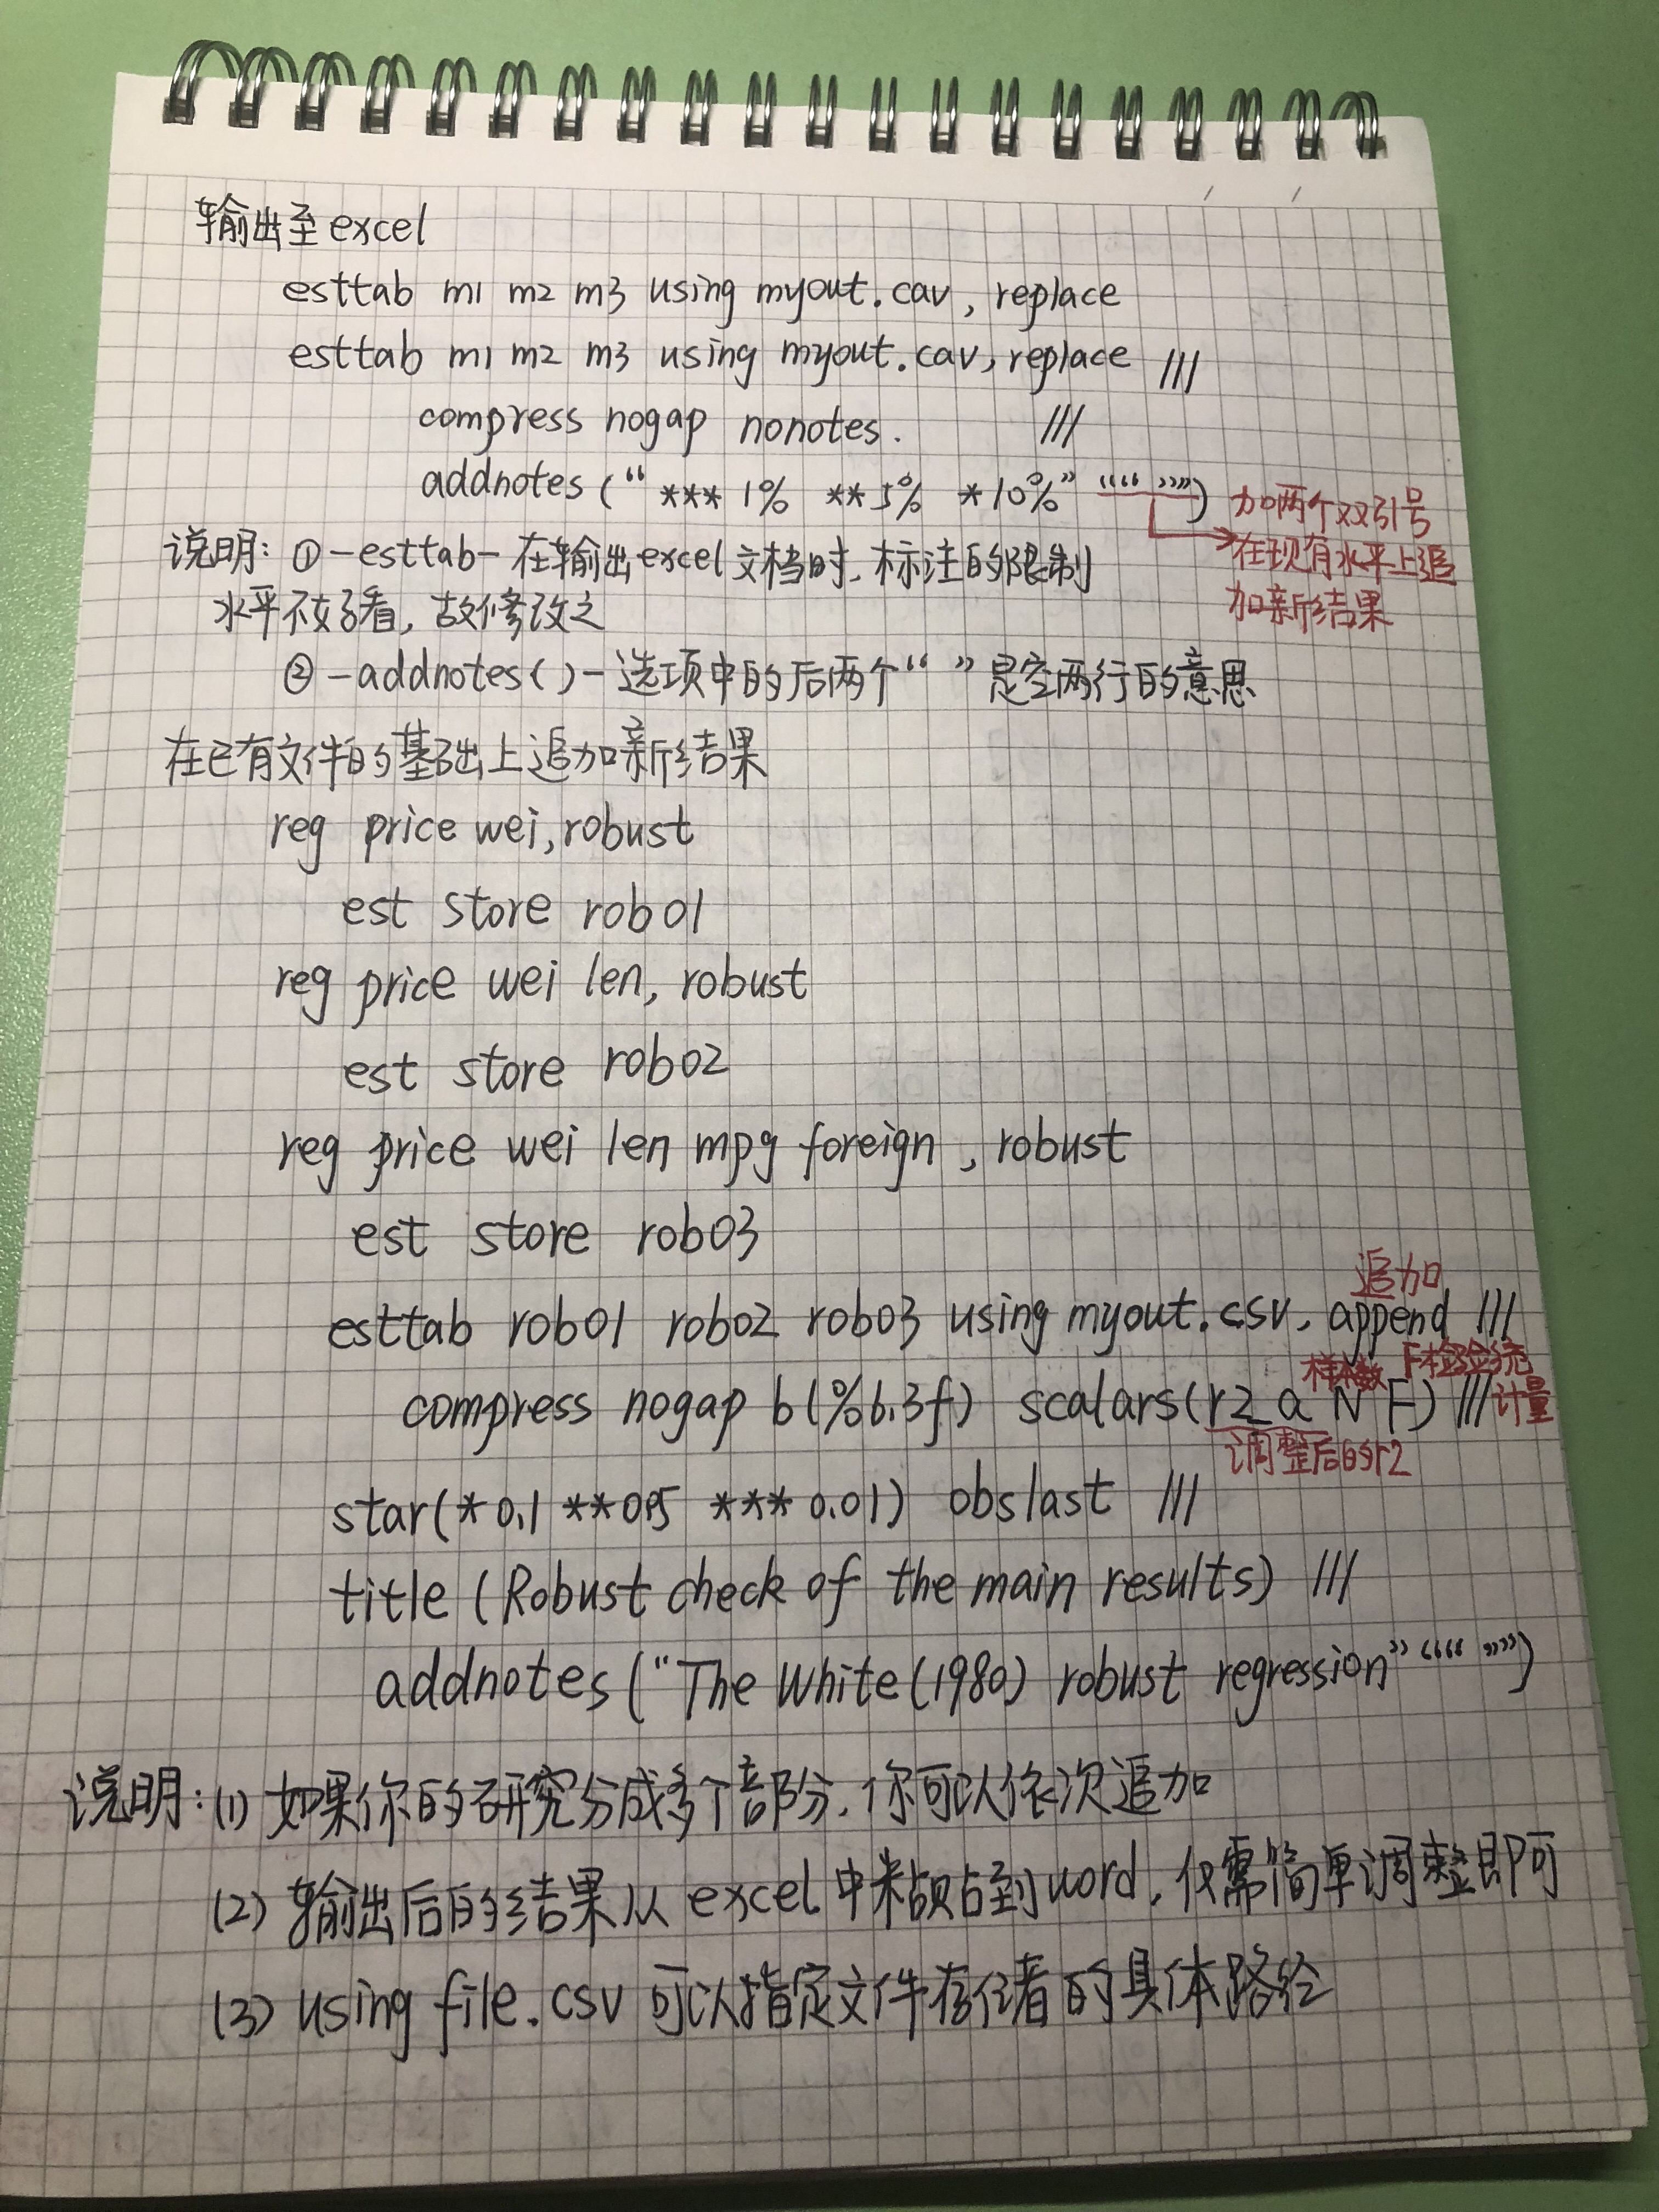 输出至excel
esttab m1 m2 m3 using myout.cav, replace
esttab m1 m2 m3 using myout.cav, replace ///
compress nogap nonotes. ///
addnotes (“ *** 1% ** 5% * 10%” ““ ””)
加两个双引号
在现有水平上追
加新结果
说明: ① -esttab- 在输出excel文档时, 标注的限制
水平不好看, 故修改之
② -addnotes( )- 选项中的后两个“ ” 是空两行的意思
在已有文件的基础上追加新结果
reg price wei, robust
est store rob01
reg price wei len, robust
est store rob02
reg price wei len mpg foreign, robust
est store rob03
追加
esttab rob01 rob02 rob03 using myout.csv, append ///
样本数 F检验统
计量
compress nogap b(%6.3f) scalars(r2_a N F) ///
调整后的r2
star(* 0.1 ** 0.05 *** 0.01) obslast ///
title (Robust check of the main results) ///
addnotes (“The White(1980) robust regression” ““ ””)
说明: (1) 如果你的研究分成多个部分, 你可以依次追加
(2) 输出后的结果从excel中粘贴到word, 仅需简单调整即可
(3) using file.csv 可以指定文件存储的具体路径